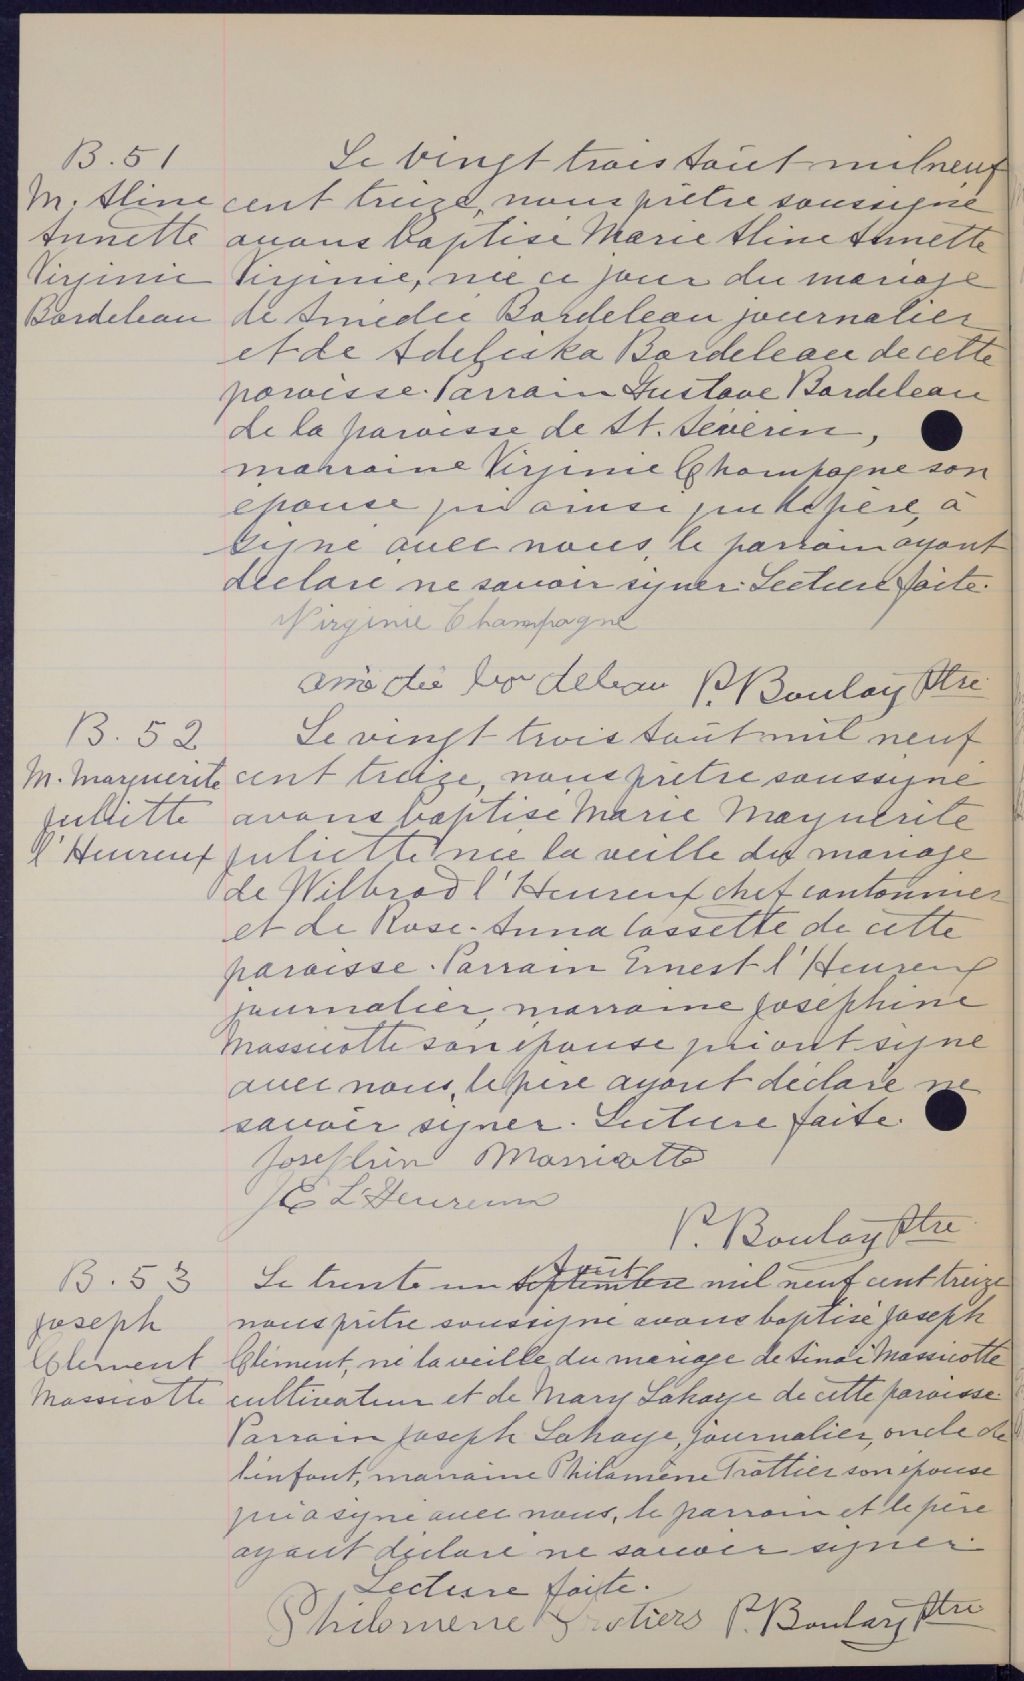 B. 51
M. Aline
Annette
Virginie
Bordeleau
Le vingt trois Août mil neuf
cent treize, nous prêtre soussigné
avons baptisé Marie Aline Annette
Virginie, née ce jour du mariage
de Amédée Bordeleau journalier
et de Adeliska Bordeleau de cette
paroisse. Parrain Gustave Bordeleau
de la paroisse de St. Séverin,
marraine Virginie Champagne son
épouse qui ainsi que le père, à
signé avec nous, le parrain ayant
déclaré ne savoir signer. Lecture faite.
Virginie Champagne
amédée bordeleau P. Boulay Ptre
B. 52
M. Marguerite
Juliette
l'Heureux
Le vingt trois Août mil neuf
cent treize, nous prêtre soussigné
avons baptisé Marie Marguerite
Juliette née la veille du mariage
de Wilbrod l'Heureux chef cantonnier
et de Rose-Anna Cossette de cette
paroisse. Parrain Ernest l'Heureux
journalier, marraine Joséphine
Massicotte son épouse qui ont signé
avec nous, le père ayant déclaré ne
savoir signer. Lecture faite.
Josephin Massicotte
J E L'Heureux
P. Boulay Ptre
B. 53
Joseph
Clément
Massicotte
Le trente un septembre Août mil neuf cent treize
nous prêtre soussigné avons baptisé Joseph
Clément, né la veille du mariage de Sinaï Massicotte
cultivateur et de Mary Lahaye de cette paroisse.
Parrain Joseph Lahaye, journalier, oncle de
l'enfant, marraine Philomène Trottier son épouse
qui a signé avec nous, le parrain et le père
ayant déclaré ne savoir signer.
Lecture faite.
Philomene Trotiers P. Boulay Ptre